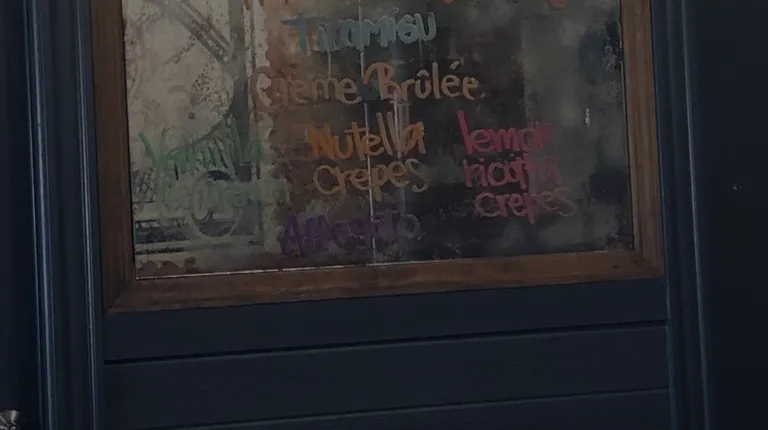 Tiramisu
Crème Brûlée
Vanilla
Ice Cream
Nutella
Crepes
lemon
ricotta
crepes
Affogato